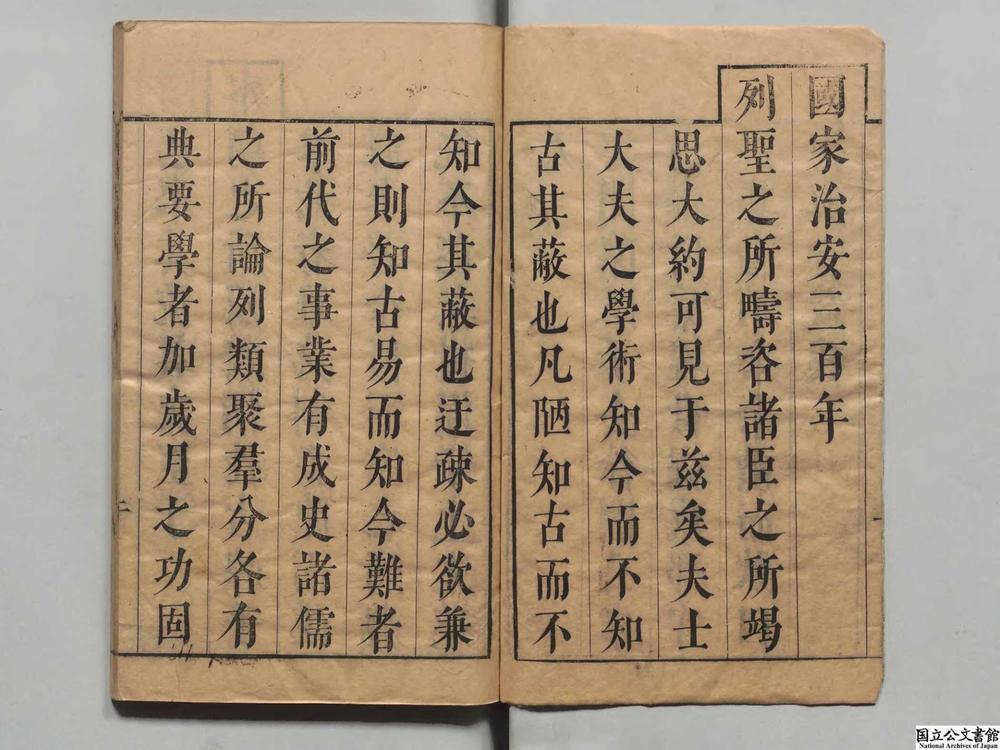 國家治安三百年
列聖之所疇咨諸臣之所竭
思大約可見于兹矣夫士
大夫之學術知今而不知
古其蔽也凡陋知古而不
一
知今其蔽也迂疎必欲兼
之則知古易而知今難者
前代之事業有成史諸儒
之所論列類聚羣分各有
典要學者加歲月之功固
二
国立公文書館
National Archives of Japan